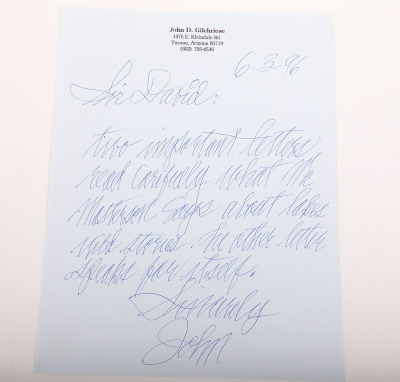 John D. Gilchriese
1979 E. Kleindale Rd.
Tucson, Arizona 85719
6-3-96
Sir David:
two important letters
read carefully what Mr
Masterson says about Lakes
wild stories. The other letter
speaks for itself.
Sincerely
John